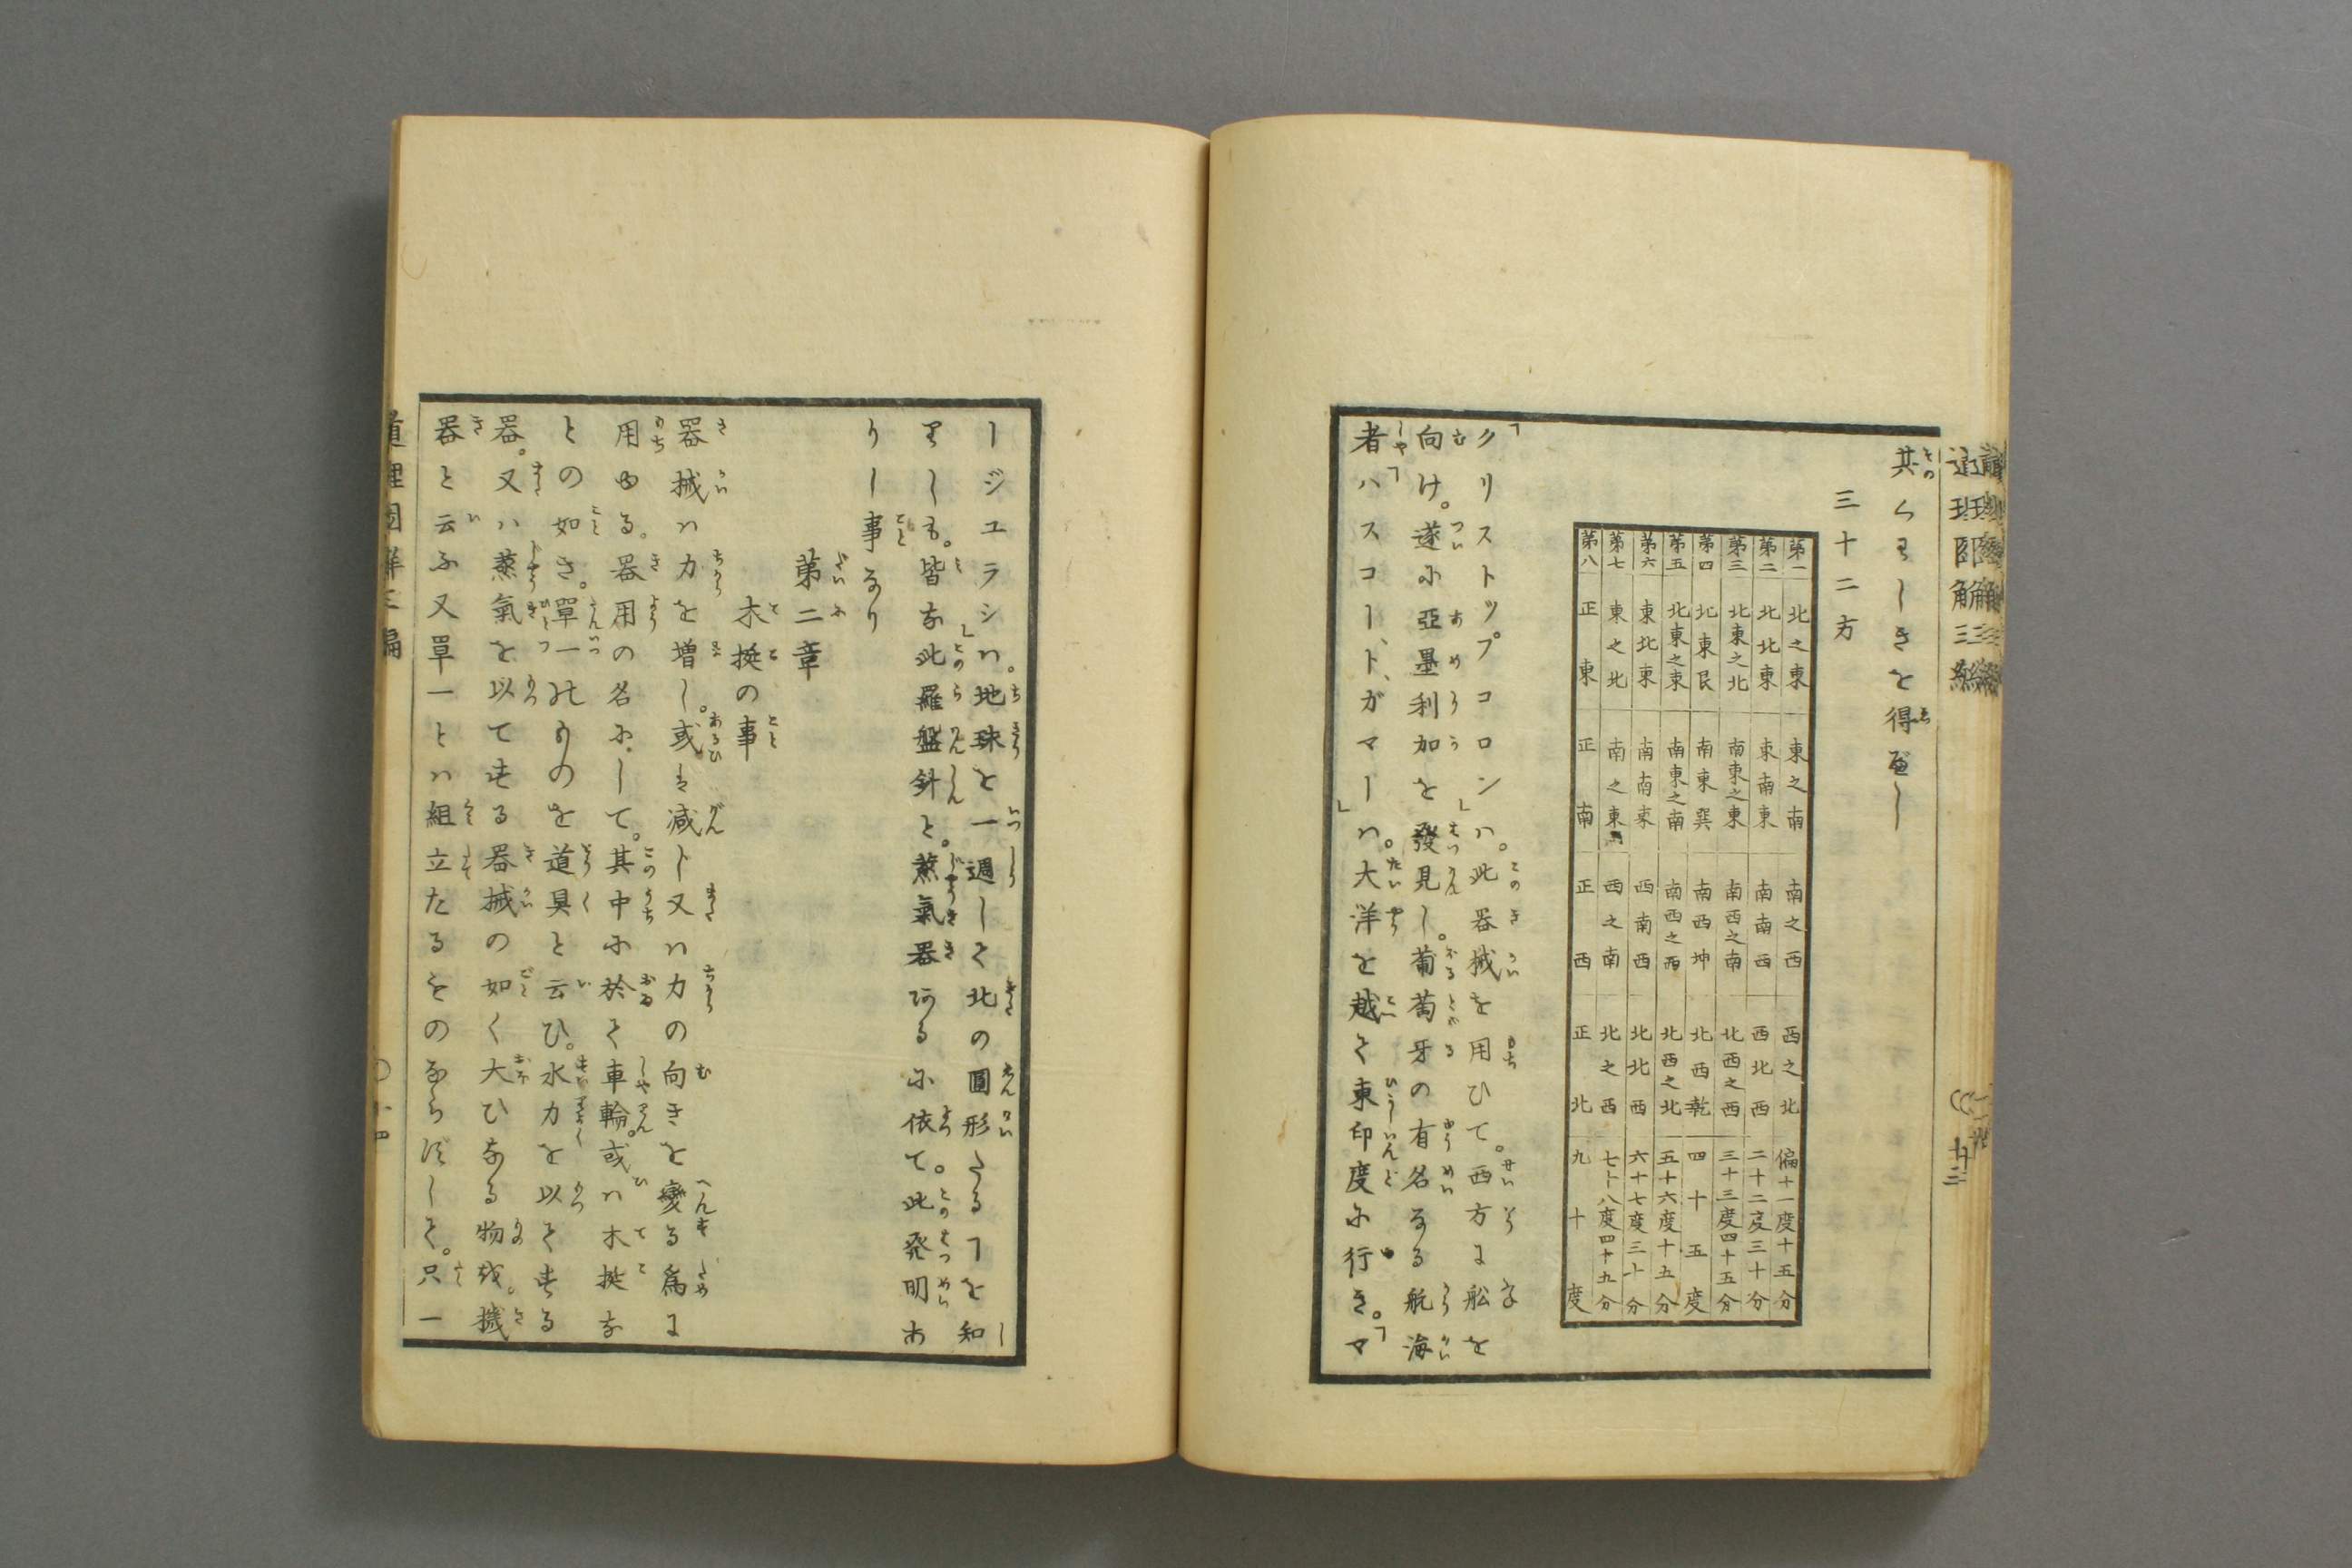 其くわしきを得べし
三十二方
第一 北之東 東之南 南之西 西之北 偏十一度十五分
第二 北北東 東南東 南南西 西北西 二十二度三十分
第三 北東之北 南東之東 南西之南 北西之西 三十三度四十五分
第四 北東艮 南東巽 南西坤 北西乾 四十五度
第五 北東之東 南東之南 南西之西 北西之北 五十六度十五分
第六 東北東 南南東 西南西 北北西 六十七度三十分
第七 東之北 南之東 西之南 北之西 七十八度四十九分
第八 正東 正南 正西 正北 九十度
「クリストップコロン」ハ。此器械を用ひて。西方に舩を
向け。遂に亞墨利加を發見し。葡萄牙の有名なる航海
者「ハスコー、ト、ガマー」ハ。大洋を越て東印度に行き。「マ
ージユラシ」ハ。地球を一週して北の圓形たるヿを知
りしも。皆な此羅盤針と。蒸氣器阿るに依て。此発明あ
りし事なり
第二章
木挺の事
器械ハ力を増し。或は减じ又ハ力の向きを變る爲に
用ゆる。器用の名にして。其中に於て車輪。或ハ木挺な
との如き。單一のものを道具と云ひ。水力を以てする
器。又ハ蒸氣を以てする器械の如く大ひなる物を。機
器と云ふ又單一とハ組立たるものならずして。只一
道理圖解三編
十四
十三